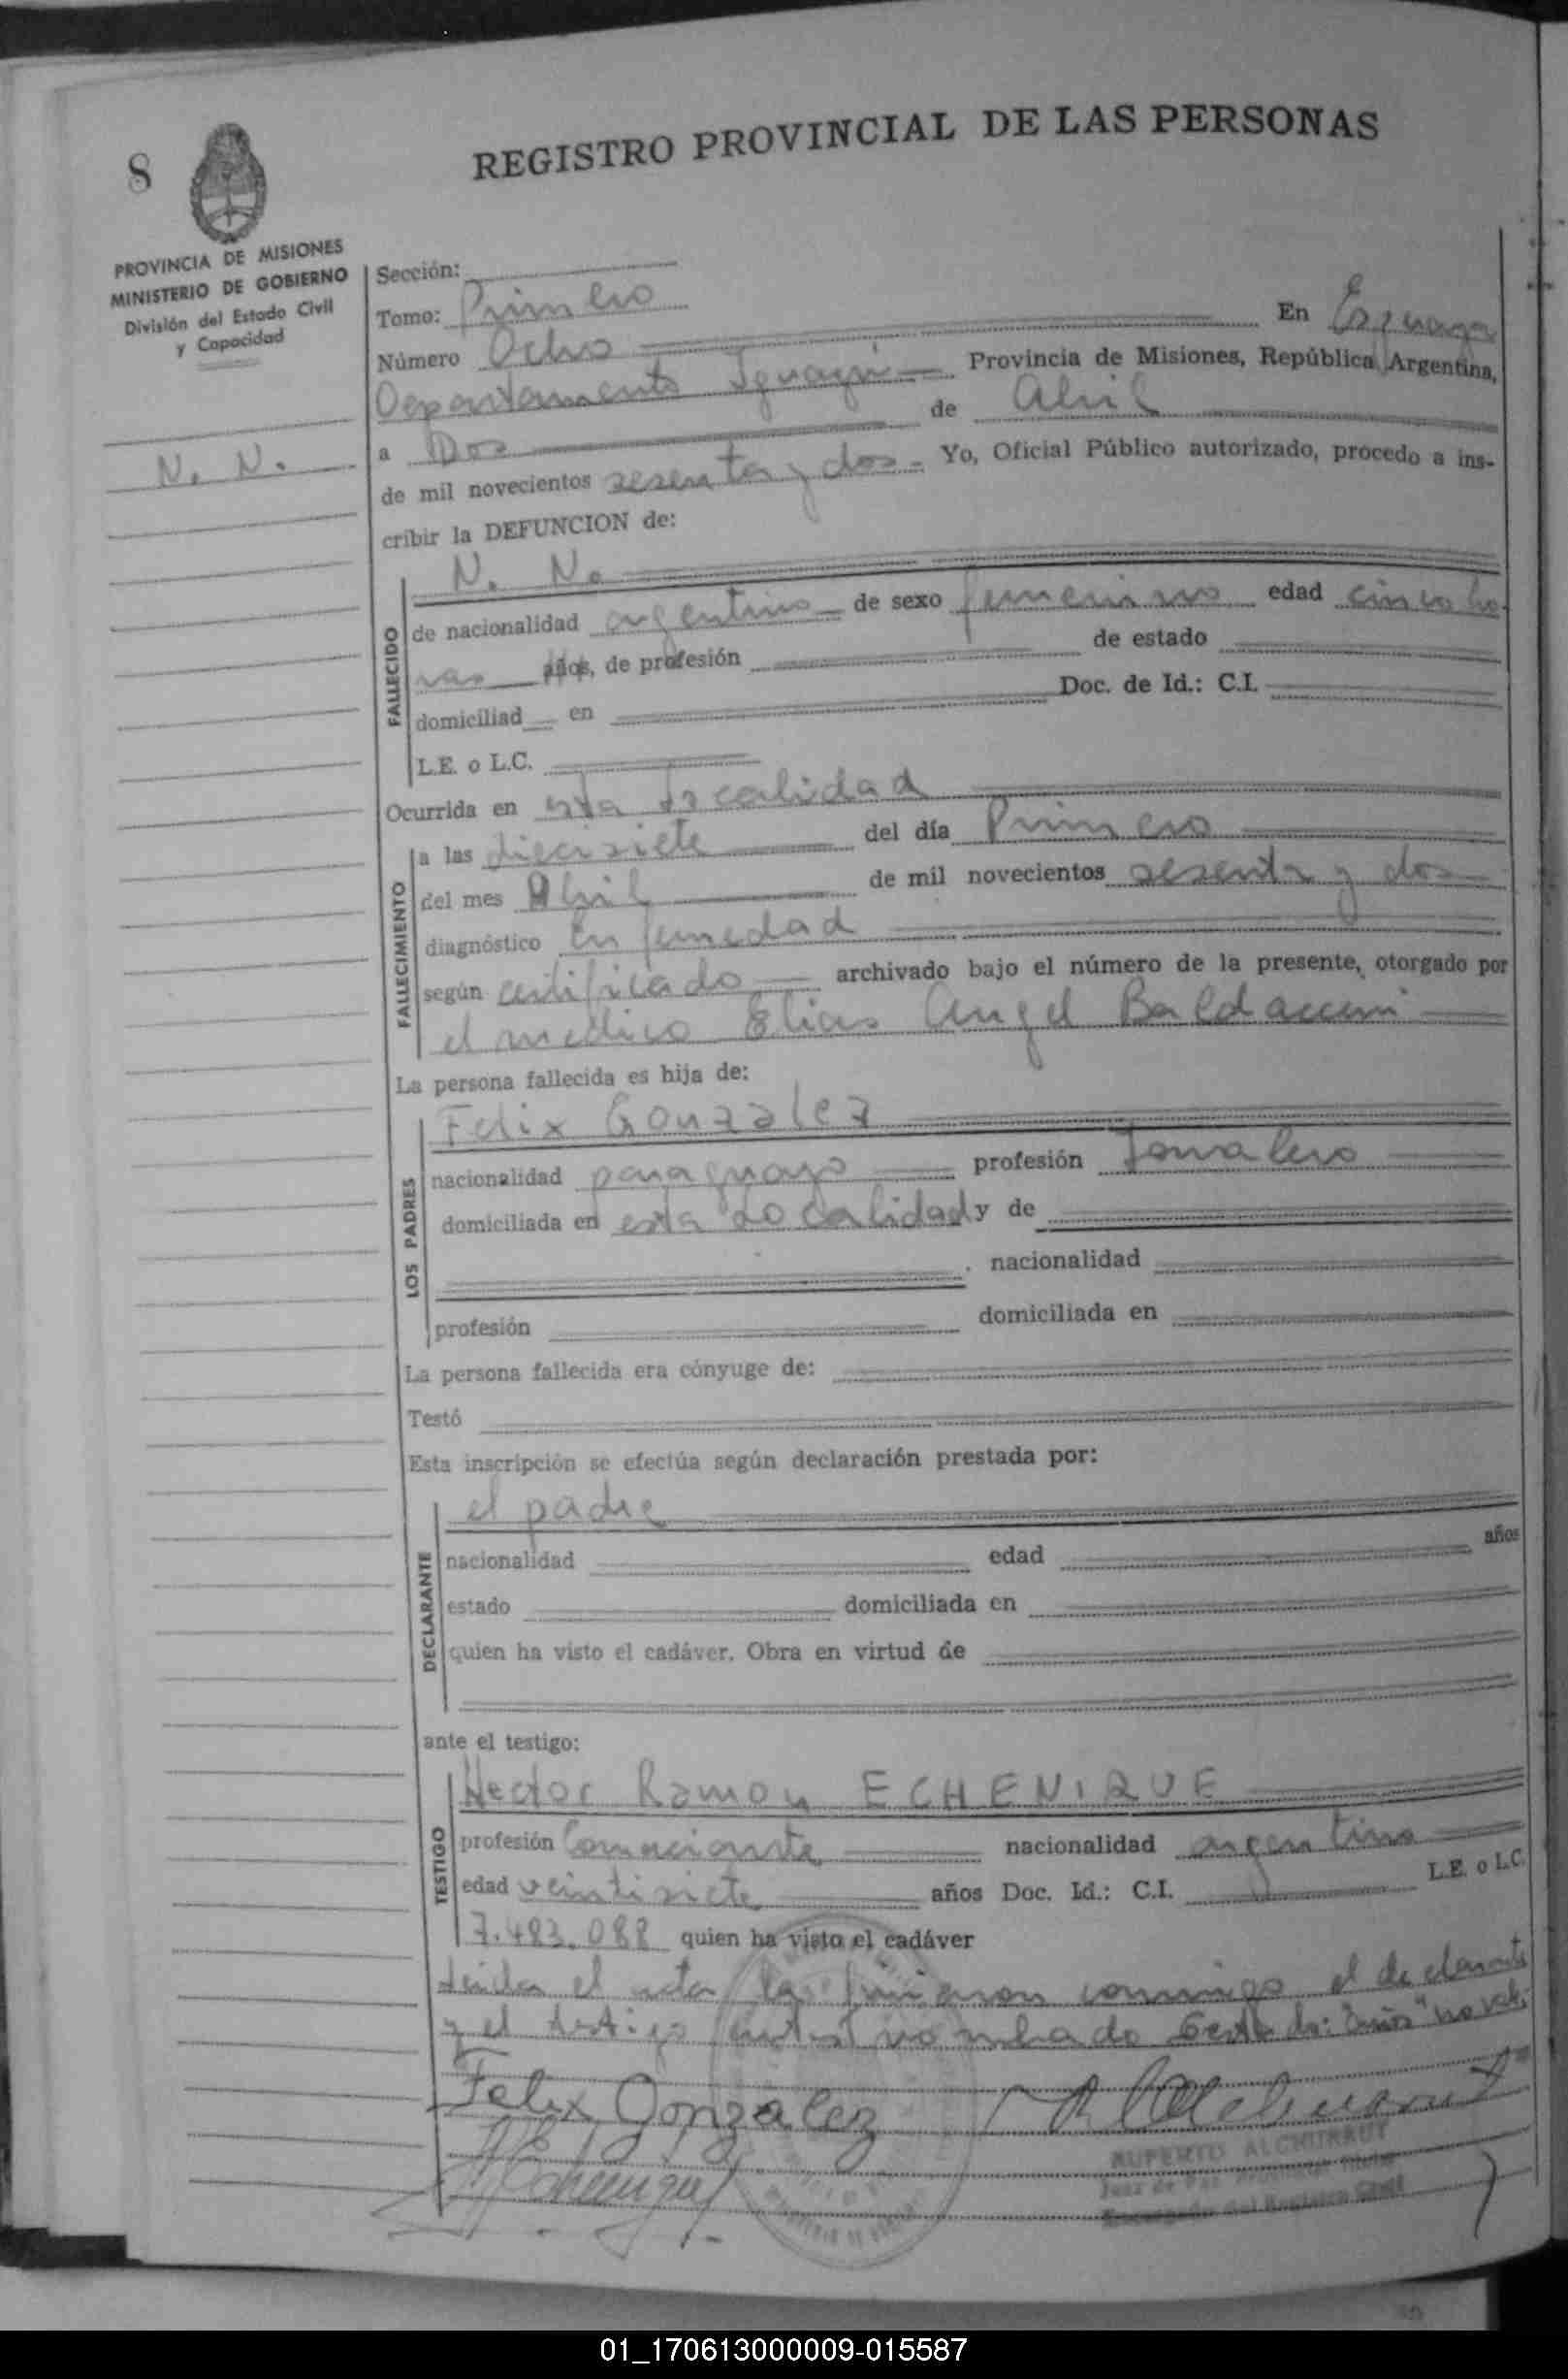 8
REGISTRO PROVINCIAL DE LAS PERSONAS
PROVINCIA DE MISIONES
MINISTERIO DE GOBIERNO
División del Estado Civil
y Capacidad
N. N.
Sección:
Tomo: Primero
En
Número Ocho
Departamento Iguazú Provincia de Misiones, República Argentina,
a Dos de Abril
de mil novecientos sesenta y dos Yo, Oficial Público autorizado, procedo a ins-
cribir la DEFUNCION de:
FALLECIDO
N. N.
de nacionalidad argentino de sexo femenino edad cinco ho
ras años, de profesión de estado
domiciliad en Doc. de Id.: C.I.
L.E. o L.C.
Ocurrida en esta localidad
FALLECIMIENTO
a las diecisiete del día Primero
del mes Abril de mil novecientos sesenta y dos
diagnóstico Enfemedad
según certificado archivado bajo el número de la presente, otorgado por
el medico Elias Angel Baldaccini
La persona fallecida es hija de:
LOS PADRES
Felix Gonzalez
nacionalidad paraguayo profesión Jornalero
domiciliada en esta localidad y de
nacionalidad
profesión domiciliada en
La persona fallecida era cónyuge de:
Testó
Esta inscripción se efectúa según declaración prestada por:
DECLARANTE
el padre
nacionalidad edad años
estado domiciliada en
quien ha visto el cadáver. Obra en virtud de
ante el testigo:
TESTIGO
Hector Ramon ECHENIQUE
profesión Comerciante nacionalidad argentino
edad veintisiete años Doc. Id.: C.I. L.E. o L.C.
7.483.088 quien ha visto el cadáver
Leida el acta la firmaron conmigo el declarante
y el testigo antes nombrado Testado: "años" no vale
Felix Gonzalez
RUPERTO ALCHURRUT
Juez de Paz
Encargado del Registro Civil
01_170613000009-015587